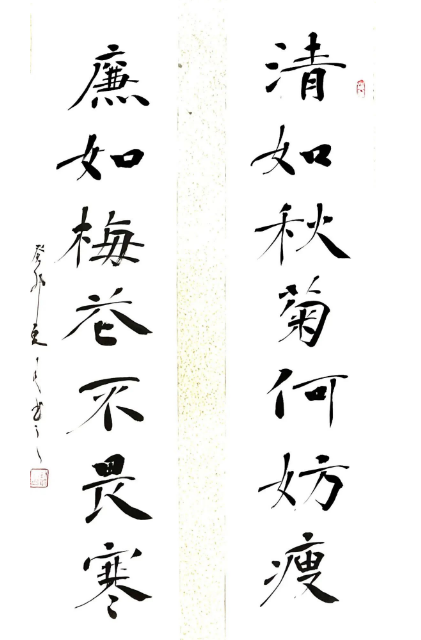 清如秋菊何妨瘦
廉如梅花不畏寒
癸卯